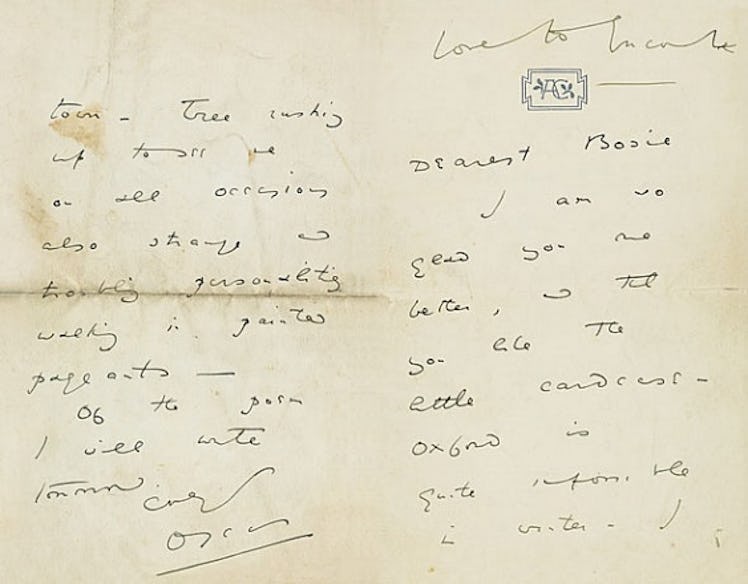 Love to Encombe
AC
Dearest Bosie
I am so
glad you are
better, and that
you like the
little cardcase -
Oxford is
quite impossible
in winter - I
town - Tree rushing
up to see me
on all occasions
also strange and
troubling personalities
walking in painted
pageants —
Of the poem
I will write
tomorrow. Ever
Oscar